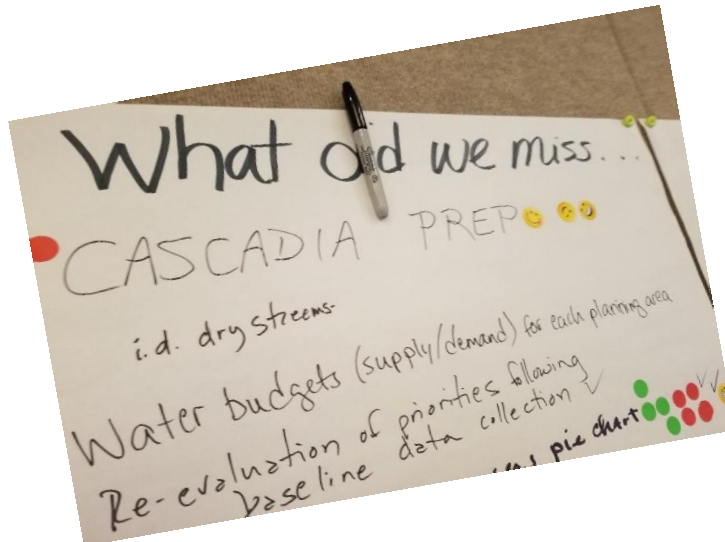 What did we miss...
CASCADIA PREP
i.d. dry streems
Water budgets (supply/demand) for each planning area
Re-evaluation of priorities following
baseline data collection ✓
pie chart